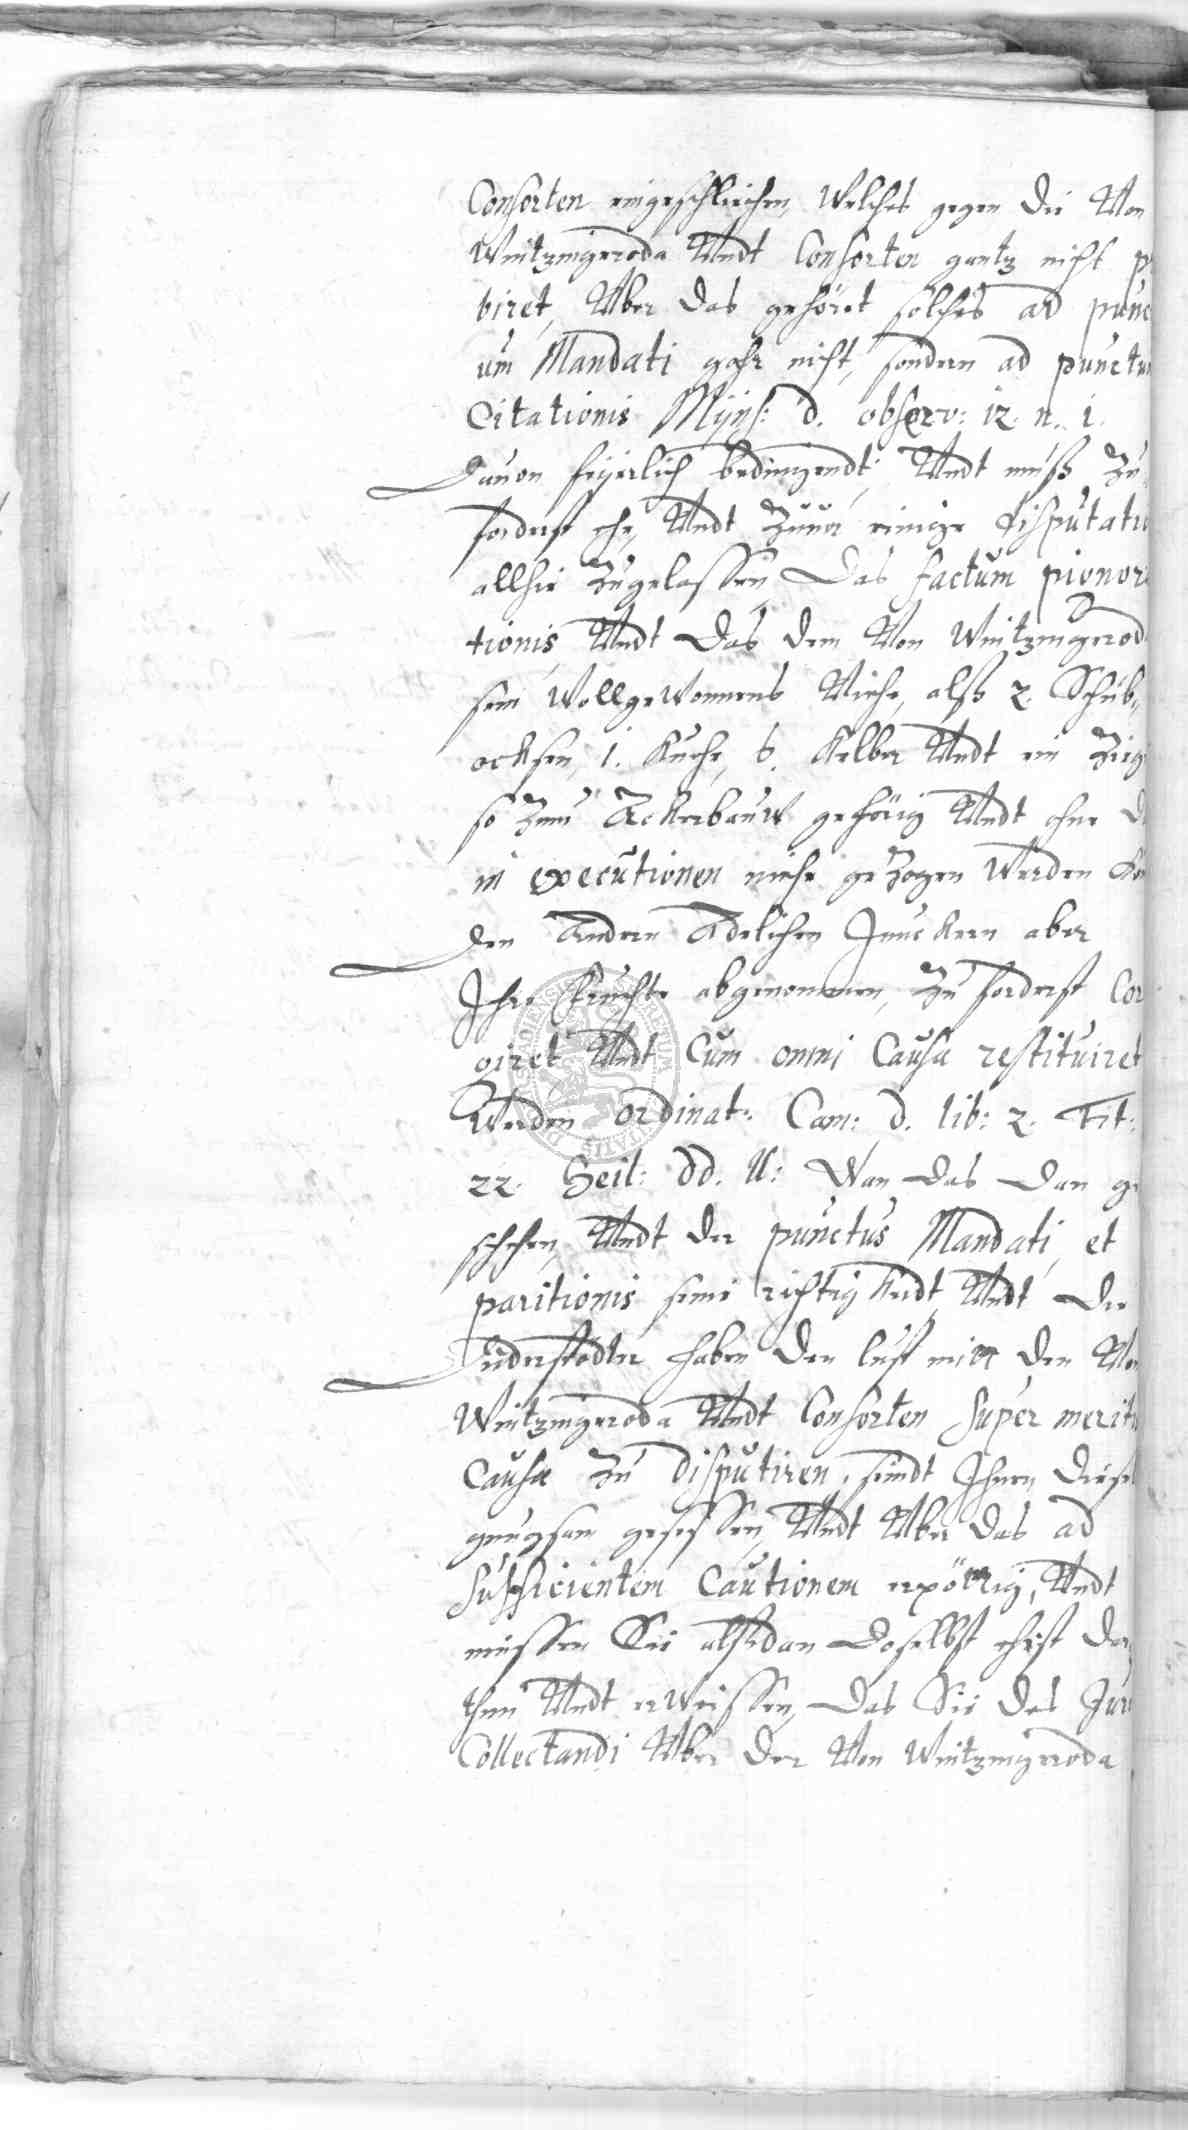 Consorten eingeschlichen, Welches gegen die Von
Wintzingeroda Vndt Consorten gantz nicht p
biret, Vber das gehöret solches ad punc
um Mandati gahr nicht, sondern ad punctum
Citationis Mijns: d. observ: 12. n. 1.
Dauon feyerlich bedingendt, Vndt muß zu
forderst ehe, Vndt zuuor einige disputatio
allhie zugelassen, Das factum pignora
tionis, Vndt Das dem Von Wintzingerod
sein Wollgewonnens Viehe, alß 2. Schub,,
ochsen, 1. Kuehe, 6. Kelber Vndt ein Zieg
so zum Ackerbauw gehörig Vndt ohne d
in executionen niehe gezogen Werden Kö
den Andern Adelichen Junckern aber
Ihre Fruchte abgenommen, Zu forderst Cor
giret Vndt Cum omni Causa restituiret
Werden ordinat: Cam: d. lib: 2. Tit:
22. Geil: dd. ll: Wan das dan ge
schehen, Vndt der punctus Mandati, et
paritionis seine richtigkeidt, Vndt die
Duderstadter haben den lust mitt den Von
Wintzingeroda Vndt Consorten super merito
Causæ zu disputiren, seindt Ihnen diese
gnugsam gesessen, Vndt Vber das ad
sufficientem Cautionem erpöttig, Vndt
müssen Sie alßdan doselbst ehist dar,
thun Vndt erweissen, das Sie des Jur
Collectandi Vber der Von Wintzingeroda